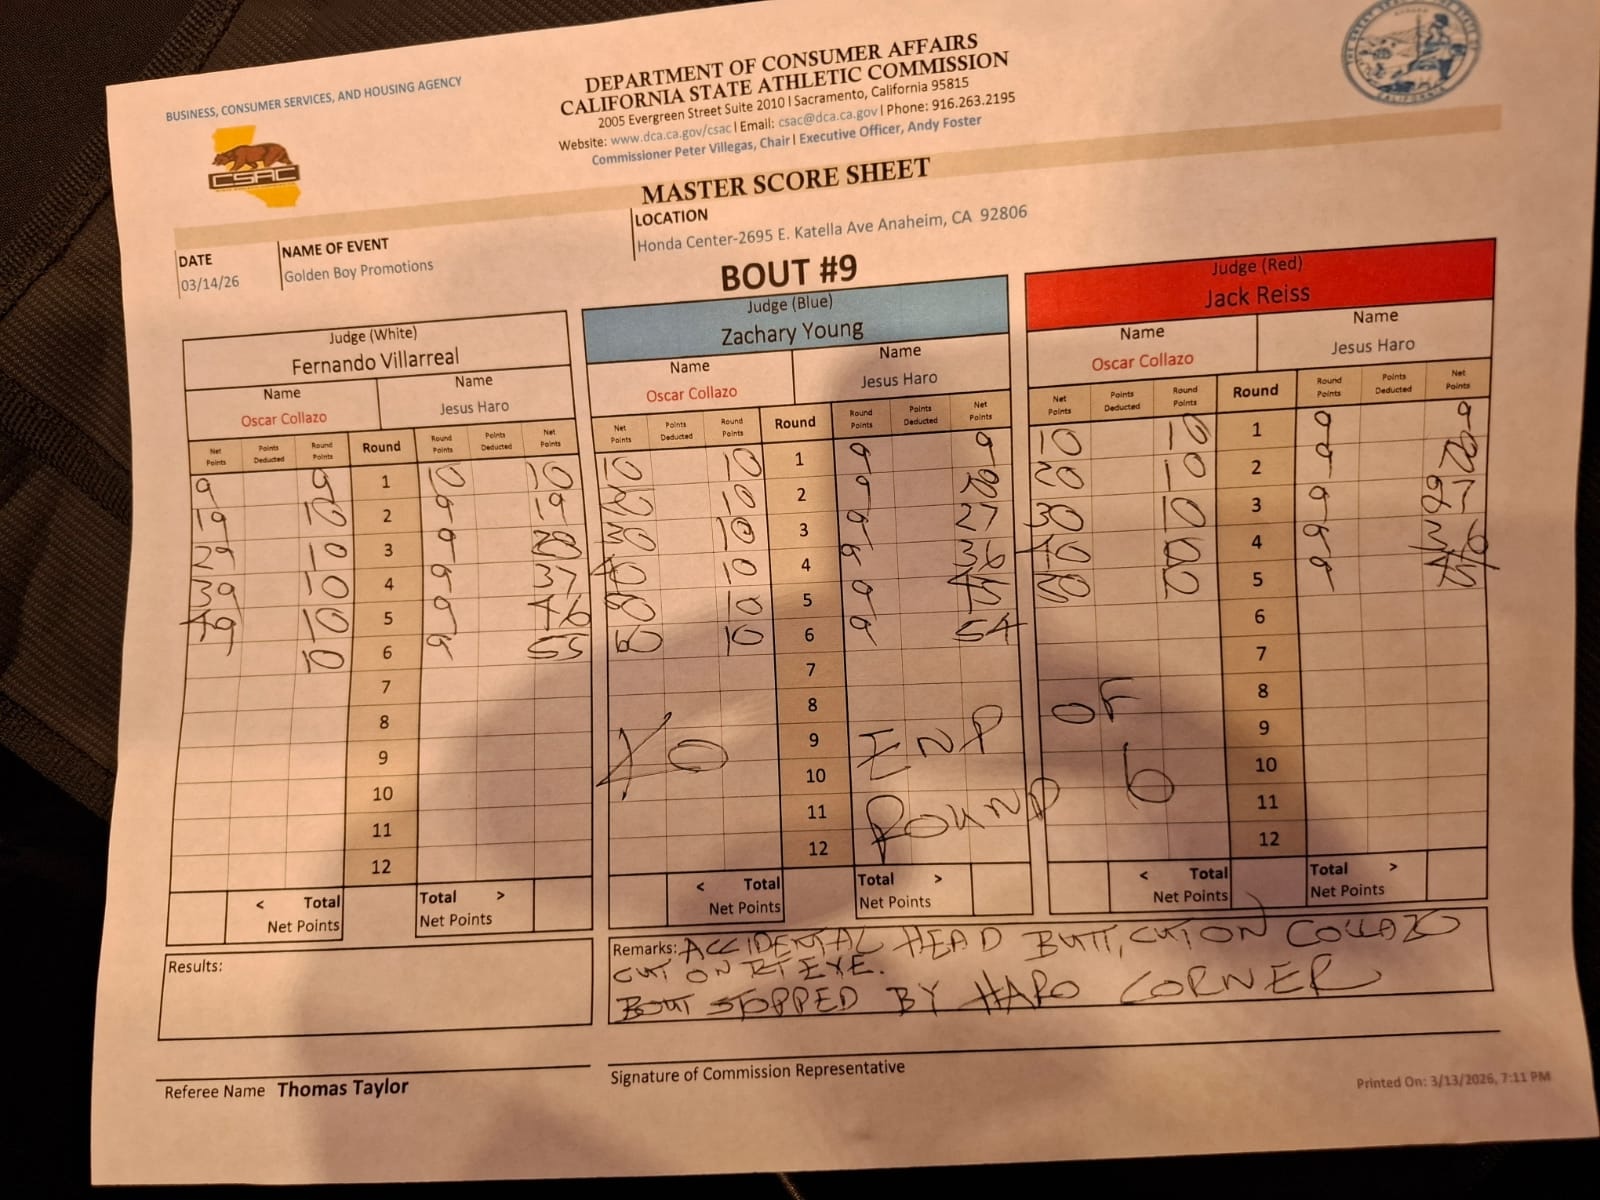 BUSINESS, CONSUMER SERVICES, AND HOUSING AGENCY
CSAC
DEPARTMENT OF CONSUMER AFFAIRS
CALIFORNIA STATE ATHLETIC COMMISSION
2005 Evergreen Street Suite 2010 | Sacramento, California 95815
Website: www.dca.ca.gov/csac | Email: csac@dca.ca.gov | Phone: 916.263.2195
Commissioner Peter Villegas, Chair | Executive Officer, Andy Foster
MASTER SCORE SHEET
DATE
03/14/26
NAME OF EVENT
Golden Boy Promotions
LOCATION
Honda Center-2695 E. Katella Ave Anaheim, CA 92806
BOUT #9
Judge (White)
Fernando Villarreal
Name Name
Oscar Collazo Jesus Haro
Net Points Points Deducted Round Points Round Round Points Points Deducted Net Points
9 9 1 10 10
19 10 2 9 19
29 10 3 9 28
39 10 4 9 37
49 10 5 9 46
10 6 9 55
7
8
9
10
11
12
< Total Net Points Total > Net Points
Judge (Blue)
Zachary Young
Name Name
Oscar Collazo Jesus Haro
Net Points Points Deducted Round Points Round Round Points Points Deducted Net Points
10 10 1 9 9
20 10 2 9
30 10 3 9 27
40 10 4 9 36
50 10 5 9 45
60 10 6 9 54
7
8
9
10
11
12
END
ROUND
< Total Net Points Total > Net Points
Judge (Red)
Jack Reiss
Name Name
Oscar Collazo Jesus Haro
Net Points Points Deducted Round Points Round Round Points Points Deducted Net Points
10 10 1 9 9
20 10 2 9
30 10 3 9
40 10 4 9
50 5 9
6
7
8
9
10
11
12
OF
6
< Total Net Points Total > Net Points
Results:
Remarks: ACCIDENTAL HEAD BUTT, CUT ON COLLAZO
CUT ON RT EYE.
BOUT STOPPED BY HARO CORNER
Referee Name Thomas Taylor
Signature of Commission Representative
Printed On: 3/13/2026, 7:11 PM